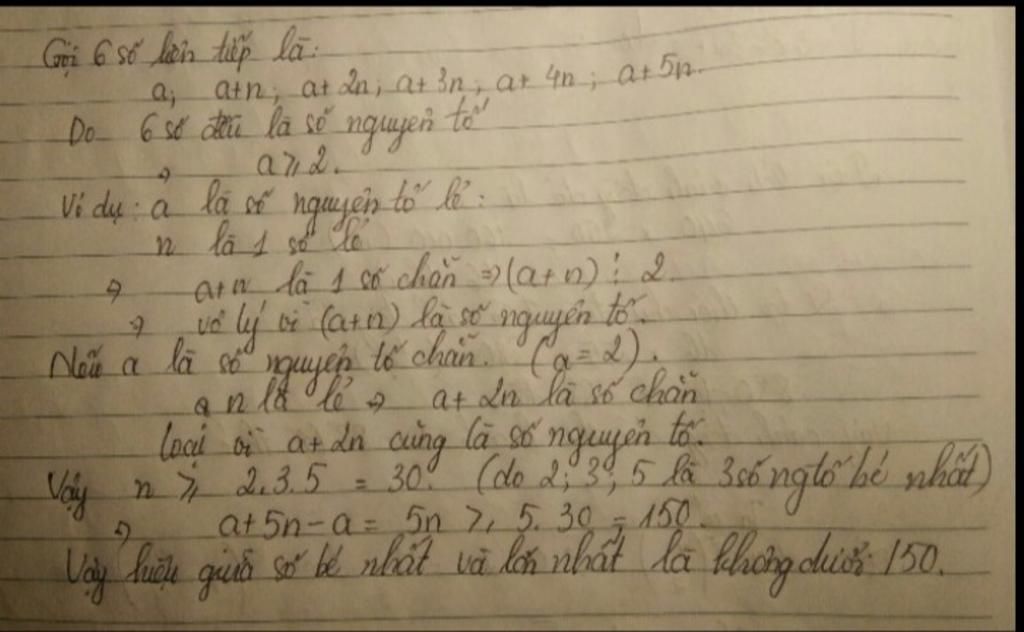 Gọi 6 số liên tiếp là:
a; a+n; a+2n; a+3n; a+4n; a+5n.
Do 6 số đều là số nguyên tố
⇒ a ⩾ 2.
Ví dụ: a là số nguyên tố lẻ:
n là 1 số lẻ
⇒ a+n là 1 số chẵn ⇒ (a+n) ⋮ 2.
⇒ vô lý vì (a+n) là số nguyên tố.
Nếu a là số nguyên tố chẵn. (a = 2).
a n là lẻ ⇒ a+2n là số chẵn
loại vì a+2n cũng là số nguyên tố.
Vậy n ⩾ 2.3.5 = 30. (do 2; 3; 5 là 3 số ngtố bé nhất)
⇒ a+5n-a = 5n ⩾ 5.30 = 150.
Vậy hiệu giữa số bé nhất và lớn nhất là không dưới 150.